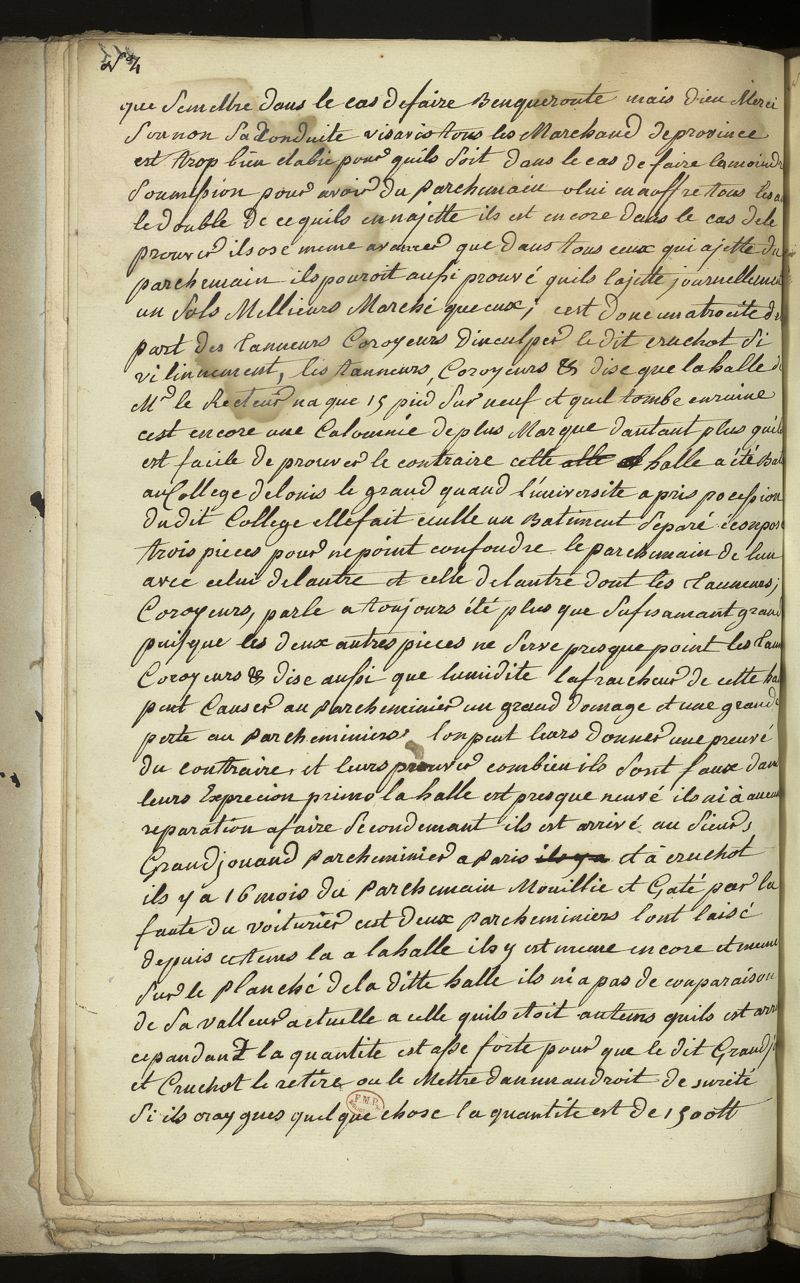 N 4
que se mettre dans le cas de faire Benqueroute mais dieu Merci
son non sa Conduite visavis tous les Marchand de province
est trop bien etablie pour quils soit dans le cas de faire la moindre
soumission pour avoir du Parchemain o lui en auffre tous les
le double de ce quils en najette ils est en core dans le cas de le
prouver ils ose meme avancer que dans tous ceux qui ajette du
parchemain ils pouroit aussi prouvé quils lajette journellement
un sols Mellieurs Marché que eux; cest donc un atrocité de
part des Tanneurs Coroyeurs dinculper le dit cruchot si
vilinnement, les tanneurs, Coroyeurs & dise que la halle de
Mr le Recteur na que 15 pied sur neuf et quel tombe enruine
cest encore une Calomnie de plus Marque dautant plus quil
est facile de prouver le contraire cette halle a été Bati
au College de louis le grand quand l'universite a pris pocession
du dit College elle fait un Batiment separé conpose
trois pieces pour ne point confondre le parchemain de lun
avec celui de lautre et celle de lautre dont les Tanneurs;
Coroyeurs, parle a toujours été plus que sufisamant grand
puisque les deux autres pieces ne serve presque point les Tan
Coroyeurs & dise aussi que lumidite la fraicheur de cette ha
peut Causer au Parcheminier un grand domage et une grande
perte au Parcheminiers lon peut leurs donner une preuvé
du contraire, et leurs prouver combien ils sont faux dans
leurs Exprecion primo la halle est presque neuvé ils ni à aucun
reparation a faire secondemant ils est arrivé au sieurs
Grandjouand Parcheminier a Paris ~~ils y a~~ et à cruchot
ils y a 16 mois du Parchemain Mouillie et Gaté par la
faute du voiturier cest deux parcheminiers lont laisé
depuis cetems la a la halle ils y est meme encore et meme
sur le Planché de la ditte halle ils ni a pas de conparaison
de sa valleur actuelle a celle quils etoit autems quils est arri
cepandant la quantite est asse forte pour que le dit Grandj
et Cruchot le retire ou le Mettre dan un androit de sureté
si ils craygnes quelque chose la quantite est de 1500 tt
F.M.P.